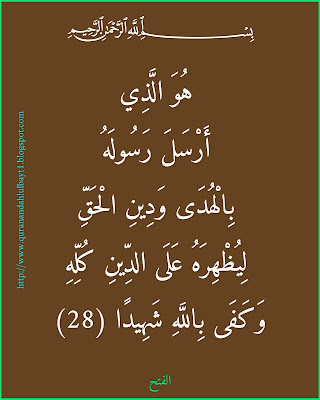 بِسْمِ اللَّهِ الرَّحْمَٰنِ الرَّحِيمِ
هُوَ الَّذِي
أَرْسَلَ رَسُولَهُ
بِالْهُدَى وَدِينِ الْحَقِّ
لِيُظْهِرَهُ عَلَى الدِّينِ كُلِّهِ
وَكَفَى بِاللَّهِ شَهِيدًا (28)
الفتح
http://www.quranandahlulbayt1.blogspot.com